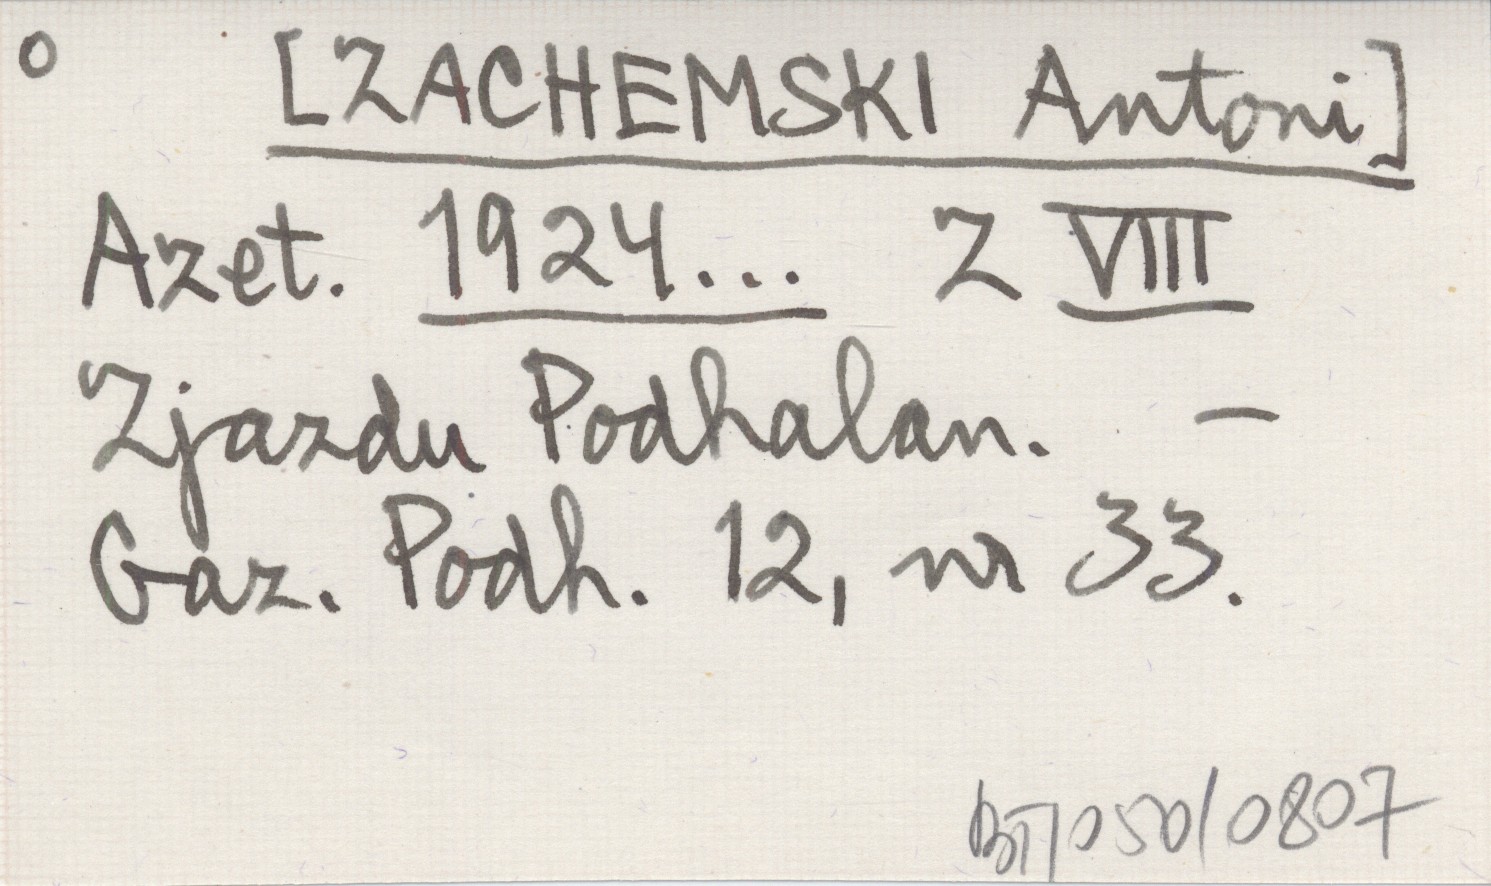 o [ZACHEMSKI Antoni]
Azet. 1924... Z VIII
Zjazdu Podhalan. –
Gaz. Podh. 12, nr 33.
BT/050/0807